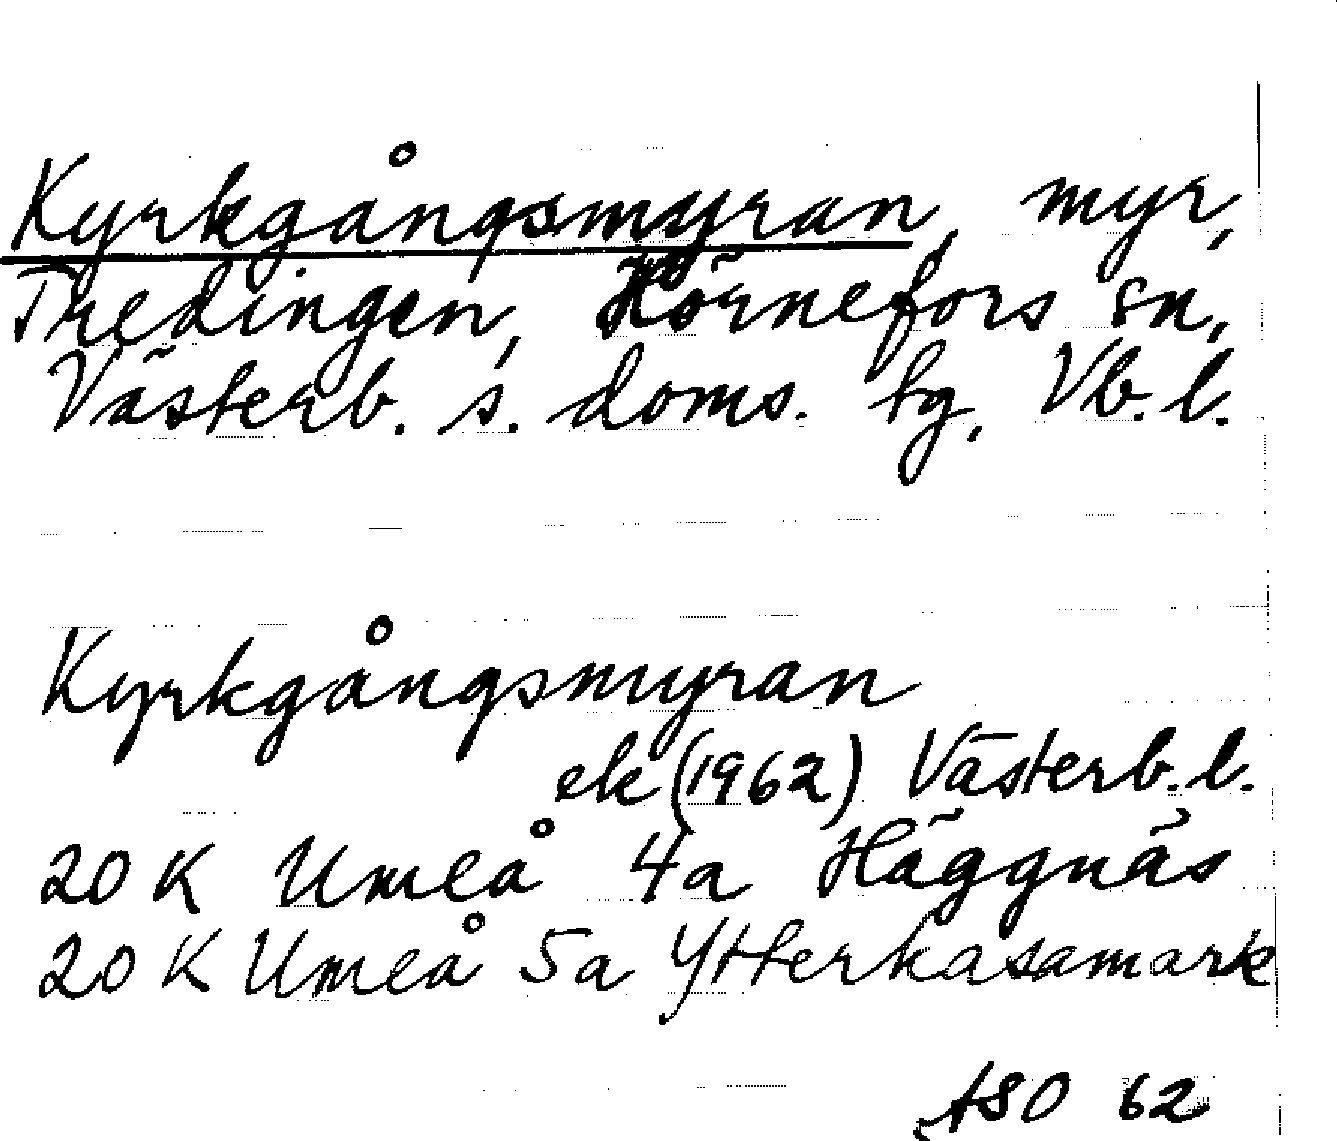 Kyrkgångsmyran, myr,
Tredingen, Hörnefors sn,
Västerb. s. doms. tg, Vb. l.
Kyrkgångsmyran
ek (1962) Västerb. l.
20 K Umeå 4a Häggnäs
20 K Umeå 5a Ytterkasamark
ASO 62